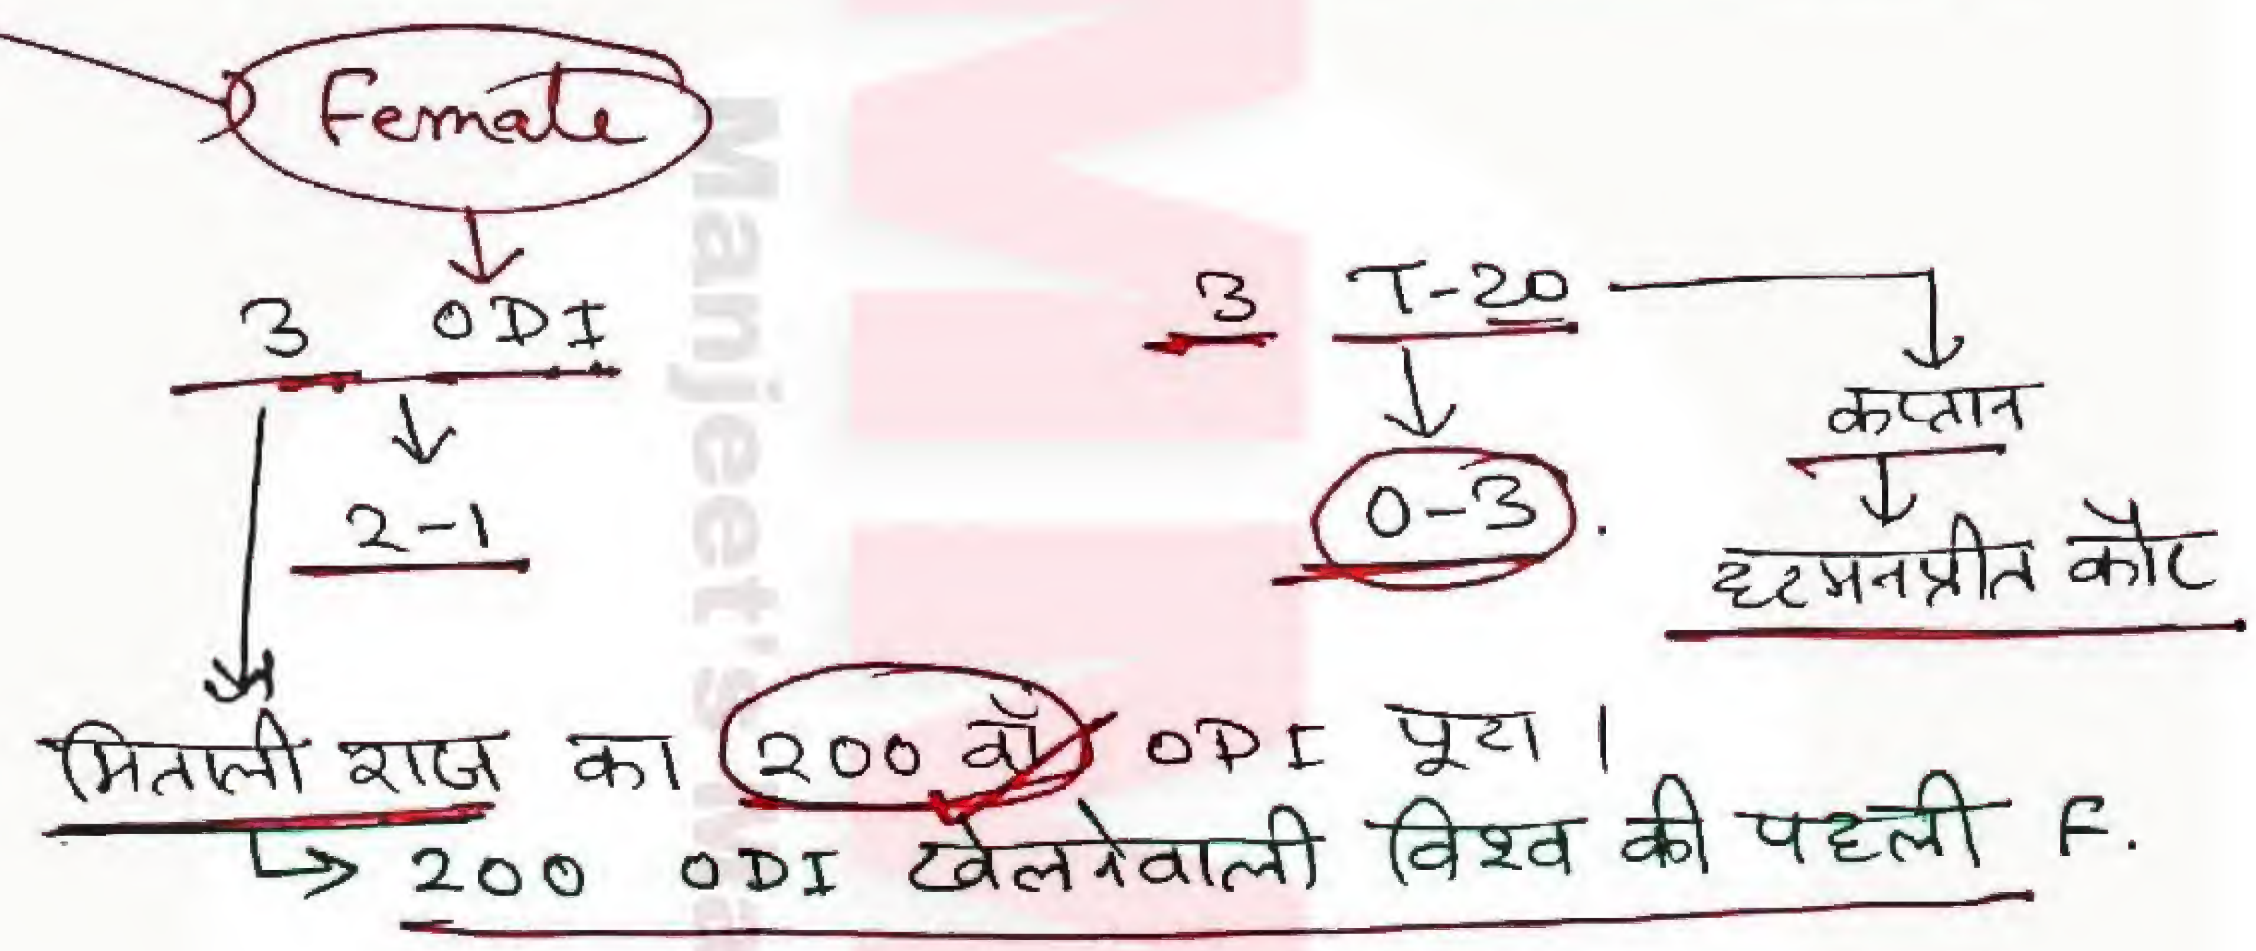 Female
3 ODI
3 T-20
कप्तान
2-1
0-3
हरमनप्रीत कौर
मिताली राज का 200 वाँ ODI पूरा।
200 ODI खेलनेवाली विश्व की पहली F.
Manjeet's Ma